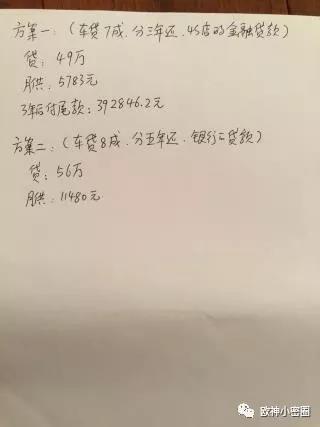 方案一:(车贷7成.分三年还.4S店的金融贷款)
贷:49万
月供:5783元
3年后付尾款:392846.2元
方案二:(车贷8成.分五年还.银行贷款)
贷:56万
月供:11480元
欧神小密圈